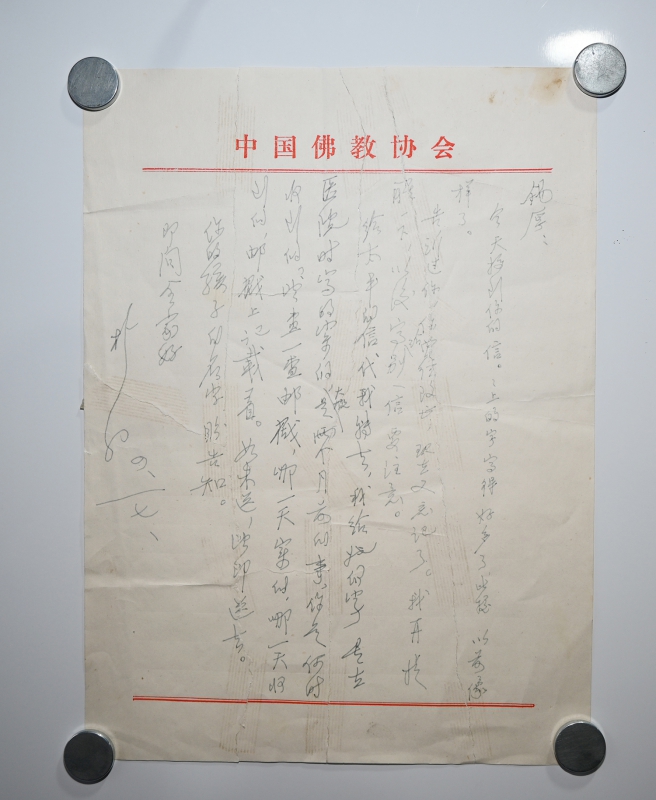 中国佛教协会
锡厚：
今天接到你的信。信上的字写得好多了 以前像
样了。
告诉过你 现在又忘记了。我再提
醒一下，以后写 信要注意。
给太平的信代我转去，我给她的字 是在
医院时写的 寄的 大概是两个月前的事，你是何时
收到的，望查一查邮戳，哪一天寄的，哪一天收
到的，邮戳上记载着。如未送，望即送去。
你的孩子的名字盼告知。
即问全家好
朴初
九、一七、